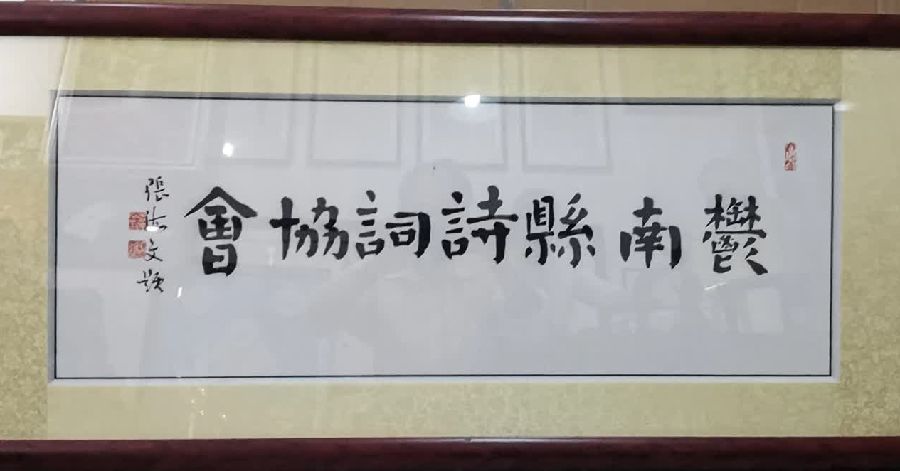 鬱南縣詩詞協會
張
文題